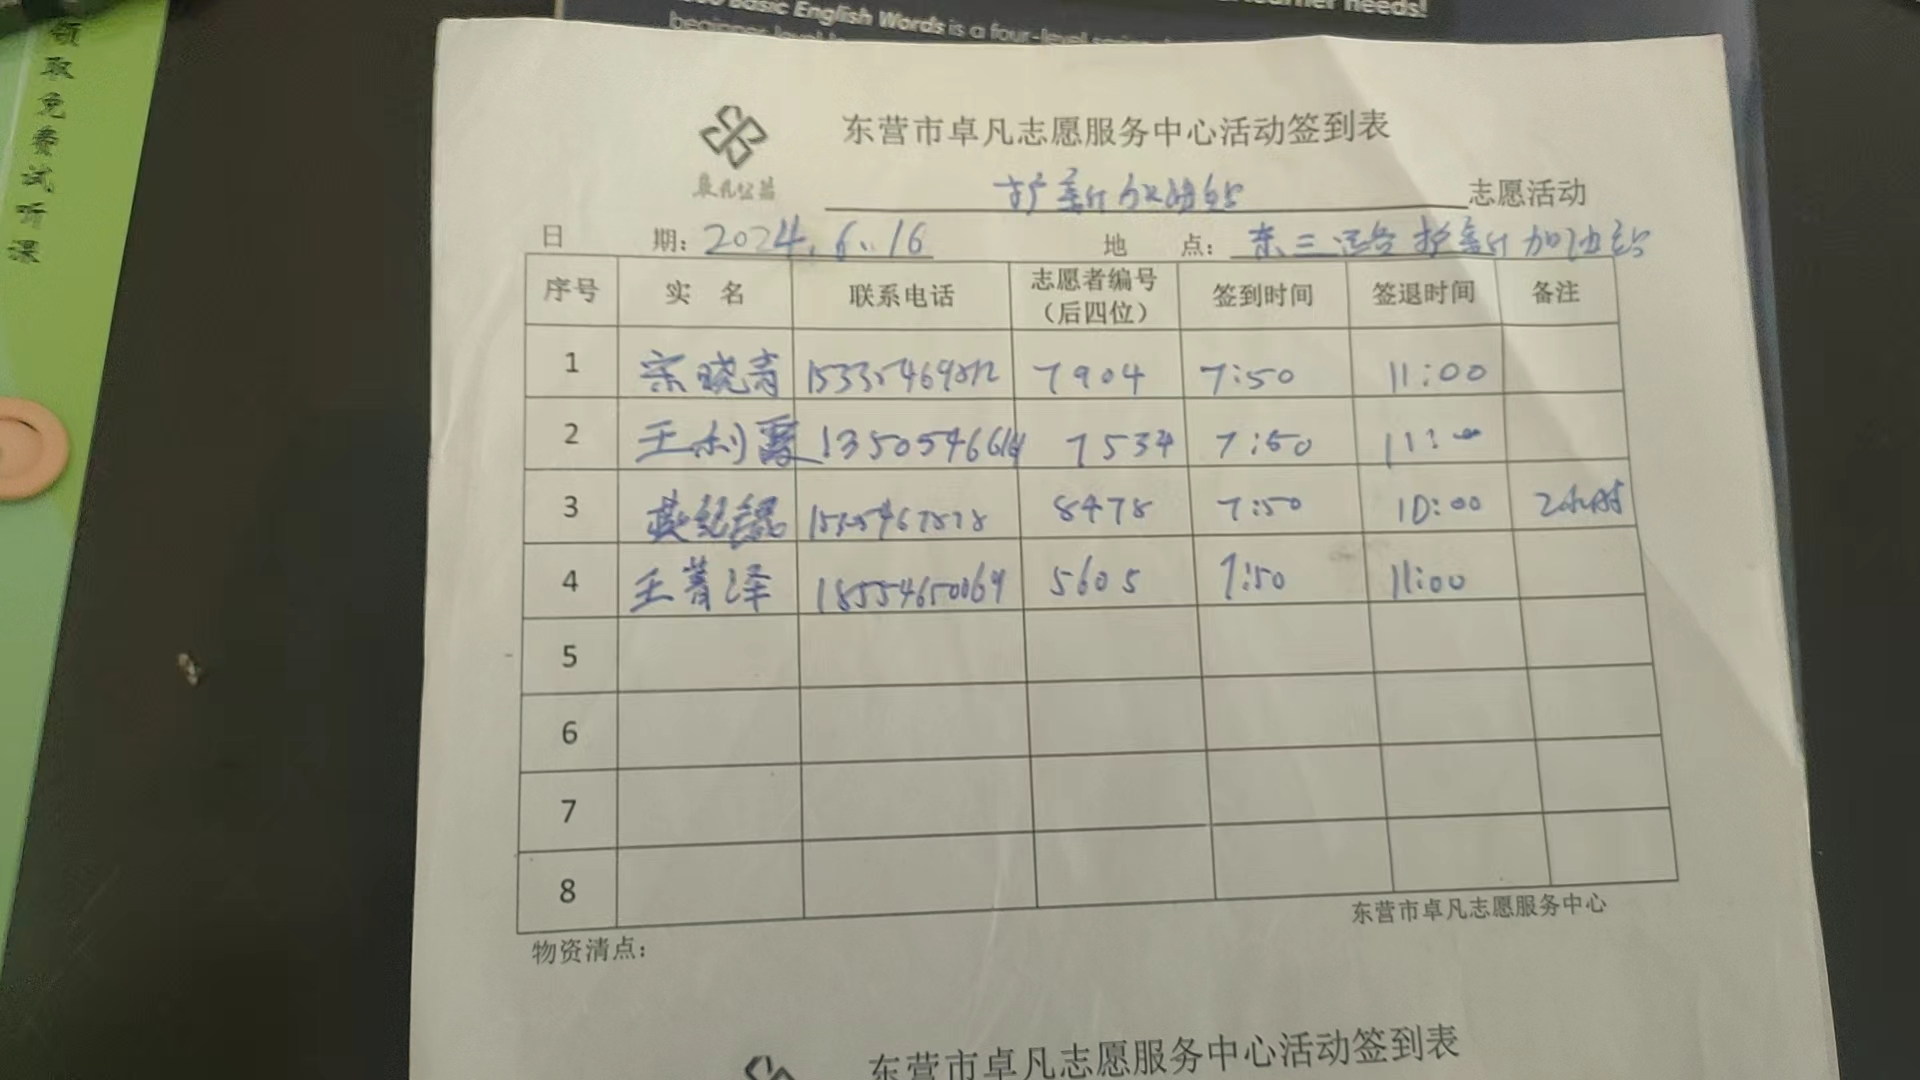 领取免费试听课
Basic English Words is a four-level series
learner needs!
beginner level
东营市卓凡志愿服务中心活动签到表
卓凡公益
护蕾加油站 志愿活动
日 期: 2024.6.16 地 点: 东三路 护蕾加油站
序号 实 名 联系电话 志愿者编号（后四位） 签到时间 签退时间 备注
1 宋晓青 7904 7:50 11:00
2 王利霞 7534 7:50 11:00
3 8478 7:50 10:00 2小时
4 王菁泽 18554650069 5605 7:50 11:00
5
6
7
8
东营市卓凡志愿服务中心
物资清点:
东营市卓凡志愿服务中心活动签到表